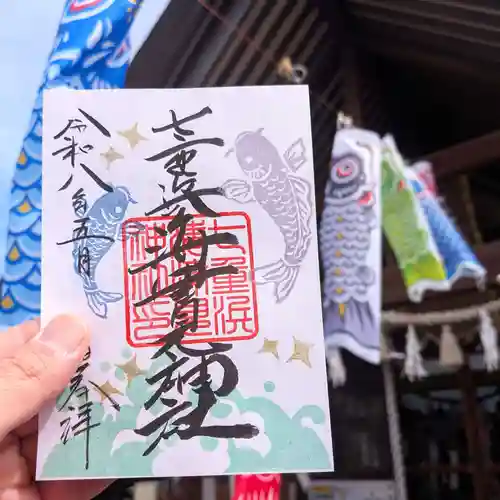 七重浜海津見神社
七重浜
海津見
神社印
令和八年五月
奉拝